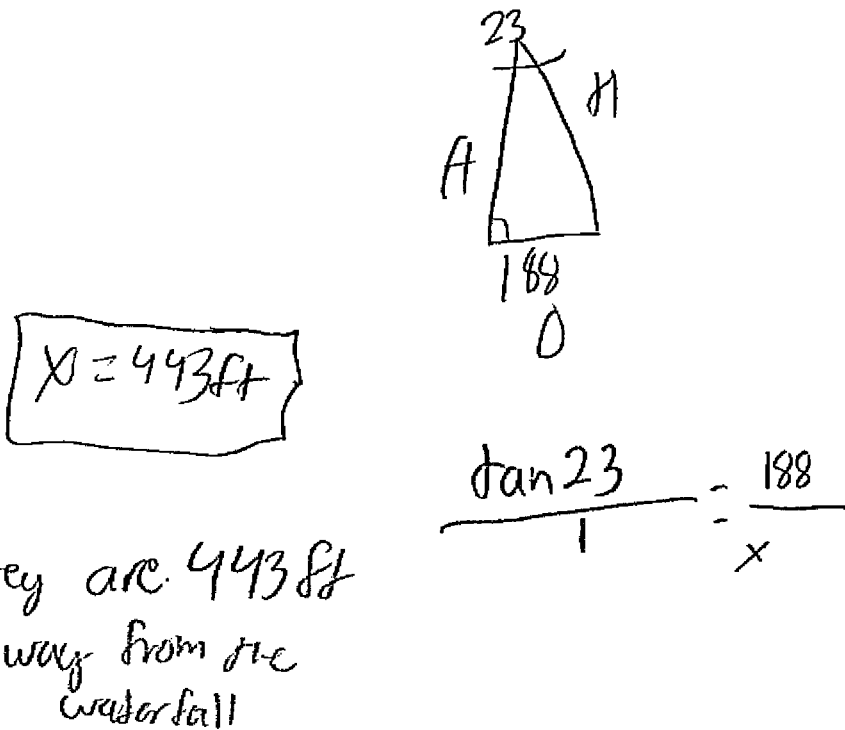 23
H
A
188
O
x = 443ft
tan 23 / 1 = 188 / x
ey are 443 ft
way from the
waterfall